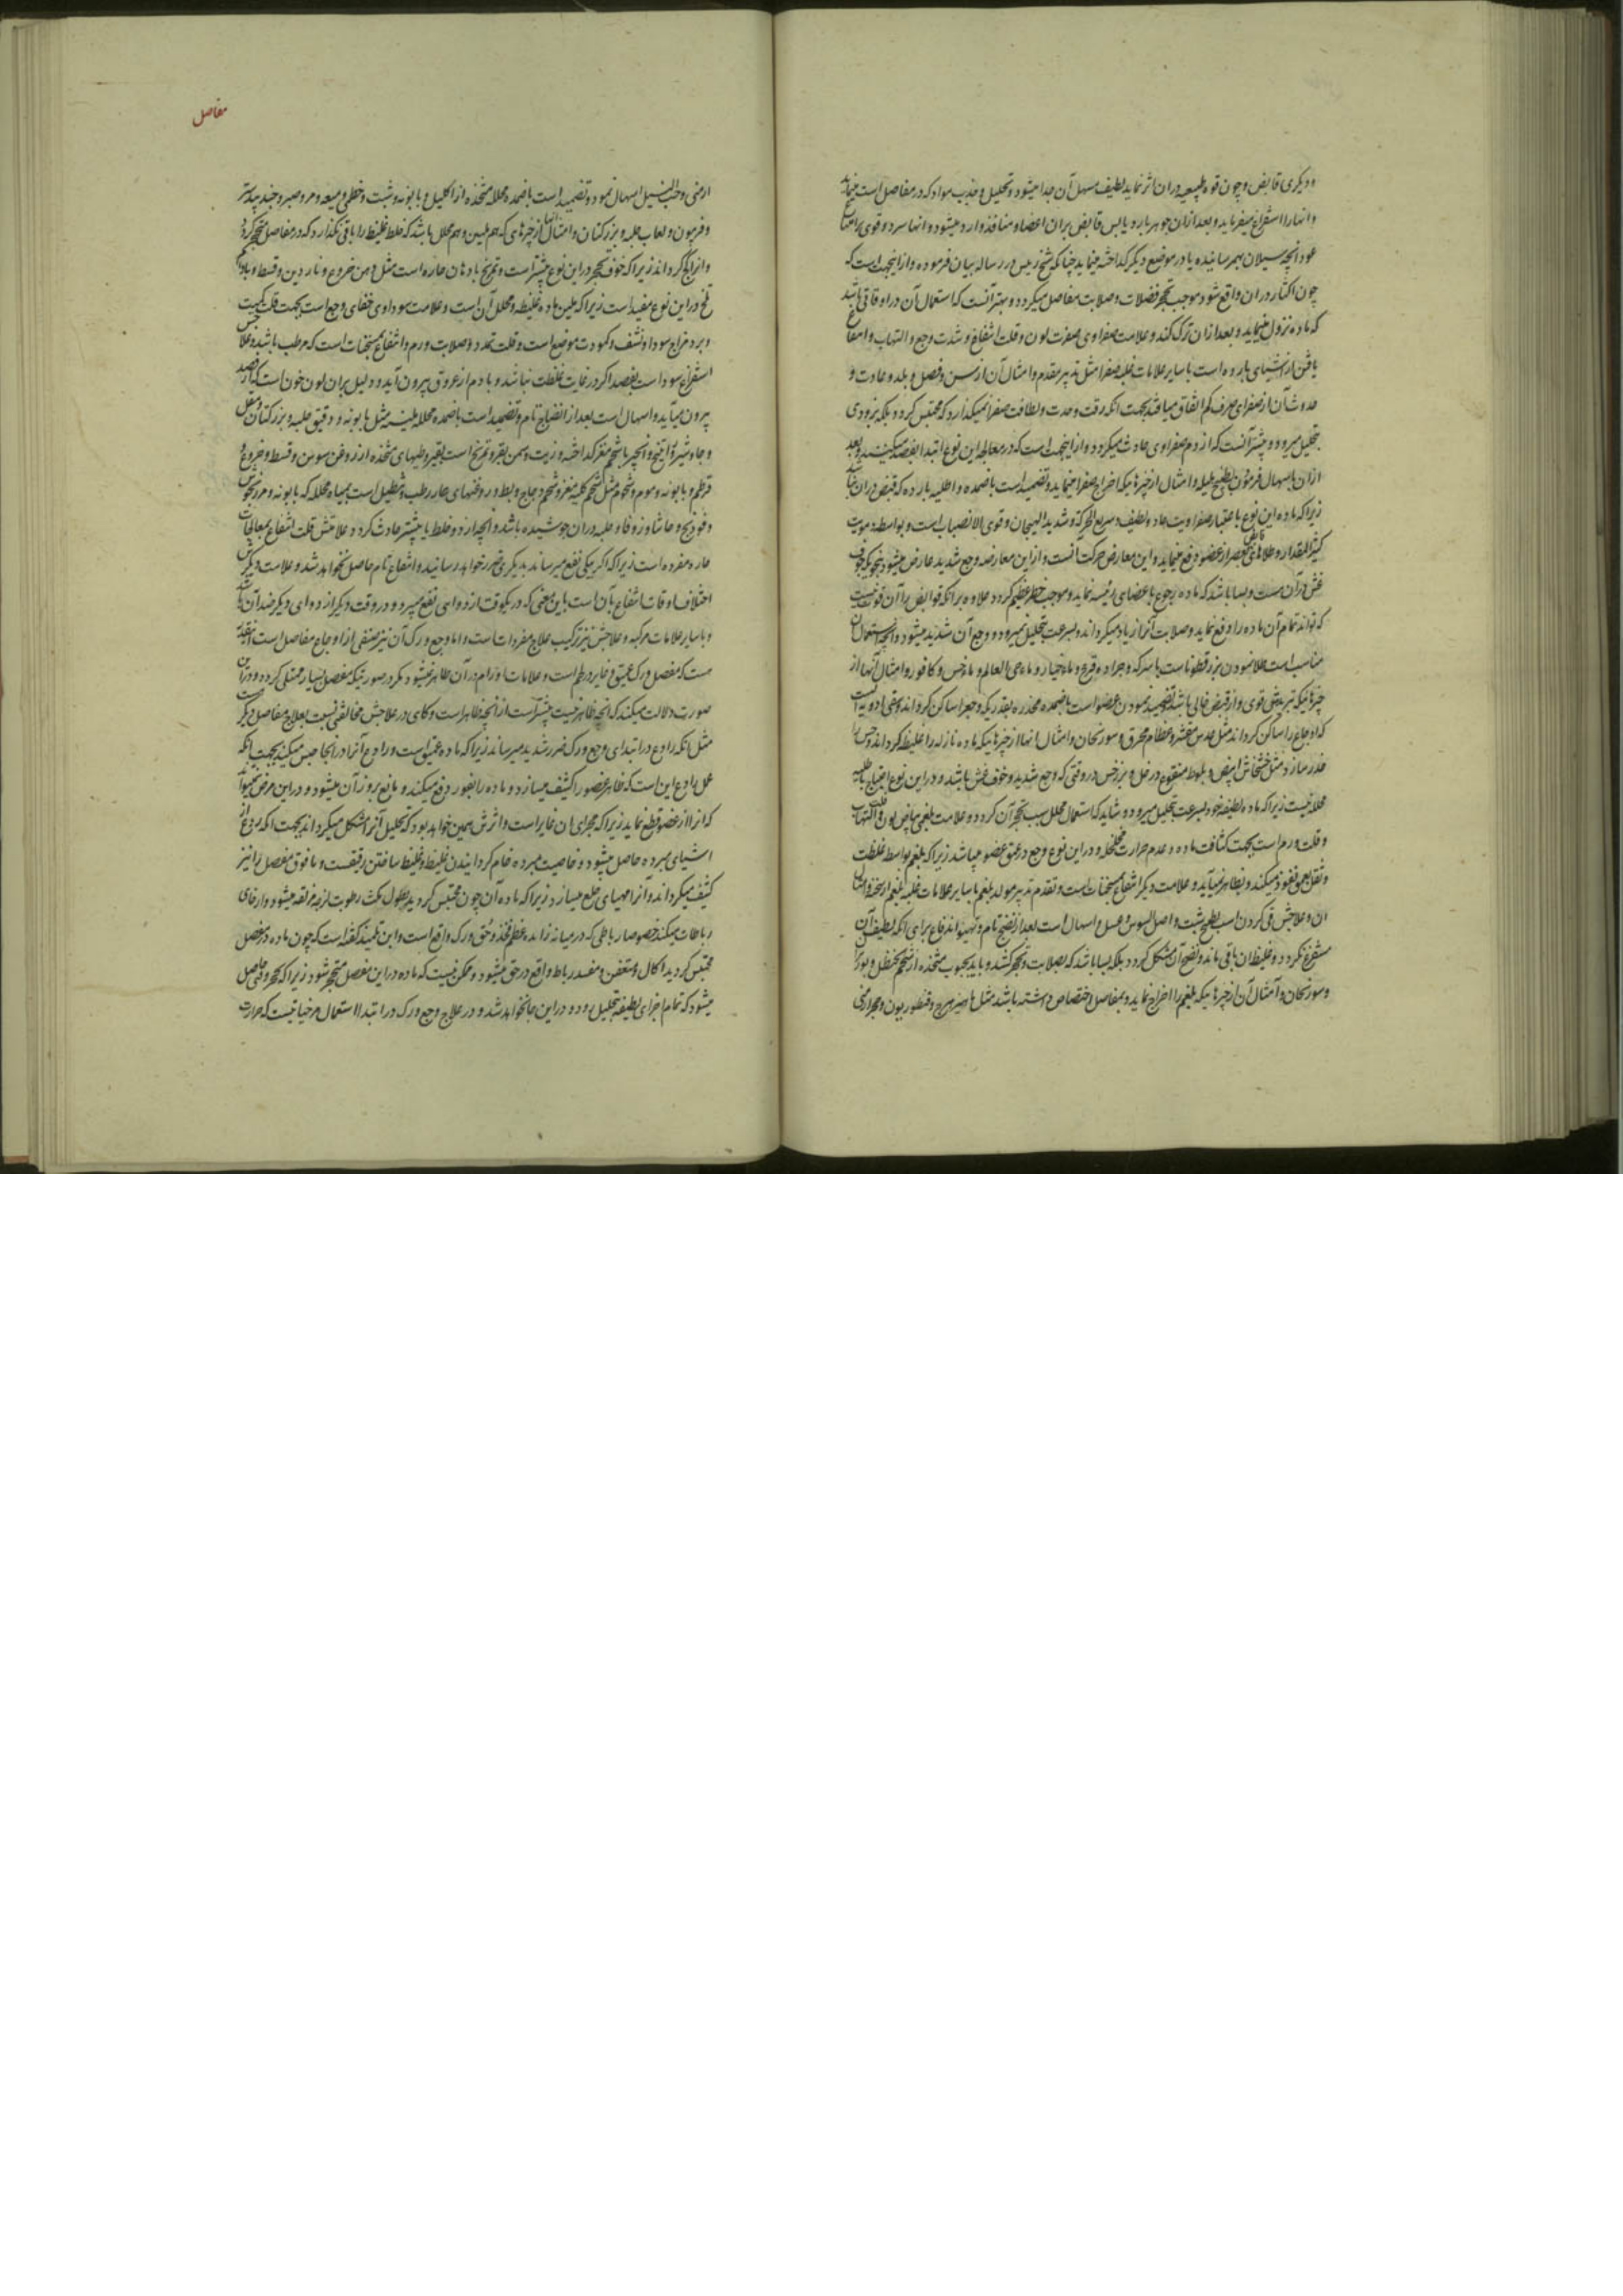 و دیکری قابض و چون قوه طبیعیه دران اثر نماید لطیف مسهل آن جدا میشود و تحلیل و جذب مواد که در مفاصل است مینماید
و انها را استفراغ میفرماید و بعد ازان جوهر بارد یابس قابض بران اعضا و منافذ وارد میشود و انها سرد و قوی
عود انچه بسیلان بهم رسانیده یا در موضع دیکر کداخته مینماید چنانکه شیخ رئیس در رساله بیان فرموده و از اینجهت است که
چون اکثار دران واقع شود موجب تحجر فضلات و صلابت مفاصل میکردد و بهتر آنست که استعمال آن در اوقاتی باشد
که ماده نزول مینماید و بعد ازان ترک کند و علامت صفراوی صفرت لون و قلت انتفاخ و شدت وجع و التهاب و انتفاع
یافتن از اشیای بارده است با سایر علامات غلبه صفرا مثل تدبیر مقدم و امثال آن از سن و فصل و بلد و عادت و
حدوث آن از صفرای صرف کم اتفاق میافتد بجهت انکه رقت و حدت و لطافت صفرا نمیکذارد که محتبس کردد بلکه بزودی
بتحلیل میرود و بیشتر آنست که از دم صفراوی حادث میکردد و از اینجهت است که در معالجه این نوع ابتدا بفصد میکنند و بعد
ازان باسهال فرمودن بطبیخ هلیله و امثال ان از چیزهائیکه اخراج صفرا مینماید و تضمید است باضمده و اطلیه بارده که قبض دران نباشد
زیرا که ماده این نوع باعتبار صفراویت حاد و لطیف و سریع الحرکة و شدید الهیجان و قوی الانصباب است و بواسطه دمویت
کثیر المقدار و طلاهای قابض بعصر از عضو دفع مینماید و این معارض حرکت آنست و از این معارضه وجع شدید عارض میشود بنحویکه خوف
غش دران هست و بسا باشد که ماده رجوع باعضای رئیسه نماید و موجب خطر عظیم کردد علاوه بر انکه قوابض را آن قوت نیست
که تواند تمام آن ماده را دفع نماید و صلابت آنرا زیاد میکرداند و بسرعت بتحلیل نمیرود و وجع آن شدید میشود و انچه استعمال آن
مناسب است طلا نمودن بزرقطوناست با سرکه و جراده قرع و ماء خیار و ماء حی العالم و ماء خس و کافور و امثال آنها از
چیزهائیکه تبریدش قوی و از قبض خالی باشد و تضمید نمودن عضو است باضمده مخدره بقدریکه وجع را ساکن کرداند و بعضی ادویه است
که اوجاع را ساکن کرداند مثل عدس مقشر و عظام محرق و سورنجان و امثال انها از چیزهائیکه ماده نازله را غلیظ کرداند و حس را
خدر سازد مثل خشخاش ابیض و بلوط منقوع در خل و بزر خس در وقتی که وجع شدید و خوف غش باشد و در این نوع احتیاج باطلیه
محلله نیست زیرا که ماده لطیفه خود بسرعت بتحلیل میرود و شاید که استعمال محلل سبب تحجر آن کردد و علامت بلغمی بیاض لون و قلت التهاب
و قلت ورم است بجهت کثافت ماده و عدم حرارت مخلخله و در این نوع وجع در عمق عضو میباشد زیرا که بلغم بواسطه غلظت
و ثقل بعمق نفوذ میکند و بظاهر نمیآید و علامت دیکر انتفاع بمسخنات است و تقدم تدبیر مولد بلغم با سایر علامات غلبه بلغم از سحنه و امثال
ان و علاجش قی کردن است بطبیخ شبت و اصل السوس و عسل و اسهال است بعد از نضج تام و تهیؤ اندفاع برای انکه لطیف آن
مستفرغ نکردد و غلیظ ان باقی ماند و نضج آن مشکل کردد بلکه بسا باشد که بصلابت و تحجر کشد و باید بحبوب متخذه از شحم حنظل و بوزیدان
و سورنجان و امثال آن از چیزهائیکه بلغم را اخراج نماید و بمفاصل اختصاص داشته باشد مثل ماهیزهرج و قنطوریون و حجر ارمنی
مفاصل
ارمنی و حب النیل اسهال نمود و تضمید است باضمده محلله متخذه از اکلیل و بابونه و شبت و خطمی و میعه و مر و صبر و جندبیدستر
و فربیون و لعاب حلبه و بزر کتان و امثال انها از چیزهای که هم ملین و هم محلل باشد که خلط غلیظ را باقی نکذارد که در مفاصل متحجر کردد
زیرا که خوف تحجر در این نوع بیشتر است و تمریخ بادهان حاره است مثل دهن خروع و ناردین و قسط و بادام
تلخ در این نوع مفید است زیرا که ملین ماده غلیظه و محلل آن است و علامت سوداوی خفای وجع است بجهت قلت کمیت
و برد مزاج سودا و نشف و کمودت موضع است و قلت تمدد و صلابت ورم و انتفاع بمسخنات است که مرطب باشد و علاجش
استفراغ سودا است بفصد اکر در غایت غلظت نباشد و با دم از عروق بیرون آید و دلیل بران لون خون است که از فصد
بیرون میآید و اسهال است بعد از انضاج تام و تضمید است باضمده محلله ملینه مثل بابونه و دقیق حلبه و بزر کتان و مقل
و جاوشیر و انجیر با شحم مغز کداخته و زیت و سمن بقر و تمریخ است بقیروطیهای متخذه از روغن سوسن و قسط و خروع و
قرطم و بابونه و موم و شحوم مثل شحم کلیه مغز و شحم دجاج و بط و روغنهای حار رطب و تنطیل است بمیاه محلله که بابونه و مرزنجوش
و فودنج و حاشا و زوفا و حلبه دران جوشیده باشد و انچه از دو خلط یا بیشتر حادث کردد علامتش قلت انتفاع بمعالجات
حاره مفرده است زیرا که اکر بیکی نفع میرساند بدیکری ضرر خواهد رسانید و انتفاع تام حاصل نخواهد شد و علامت دیکرش
اختلاف اوقات انتفاع بآن است باین معنی که در یکوقت از دوای نفع میبرد و در وقت دیکر از دوای دیکر ضد آن باشد
و با سایر علامات مرکبه و علاجش نیز ترکیب علاج مفردات است و اما وجع ورک آن نیز صنفی از اوجاع مفاصل است
هست که مفصل ورک عمیق و غایر در لحم است و علامات اورام در آن ظاهر نمیشود مکر در صورتیکه مفصل بسیار ممتلی کردد و در این
صورت دلالت میکند که انچه ظاهر نیست بیشتر است از انچه ظاهر است و کاهی در علاجش مخالفتی نسبت بعلاج مفاصل دیکر
مثل انکه رادع در ابتدای وجع ورک ضرر شدید میرساند زیرا که ماده عمیق است و رادع آنرا در انجا حبس میکند بجهت انکه
عمل رادع این است که ظاهر عضو را کثیف میسازد و ماده را بغور دفع میکند و مانع بروز آن میشود و در این مرض نمیتواند
که انرا از عضو قطع نماید زیرا که مجرای ان غایر است و اثرش همین خواهد بود که تحلیل آنرا مشکل میکرداند بجهت انکه ردع از
اشیای مبرده حاصل میشود و خاصیت مبرده خام کردانیدن غلیظ و غلیظ ساختن رقیقست و ما فوق مفصل را نیز
کثیف میکرداند و آنرا مهیای خلع میسازد زیرا که ماده آن چون محتبس کردید بطول مکث رطوبت لزجه مزلقه میشود و ارخای
رباطات میکند خصوصا رباطی که در میانه زائده عظم فخذ و حق ورک واقع است کفته است که چون ماده در مفصل
محتبس کردید اکال و متعفن و مفسد رباط واقع در حق میشود و ممکن نیست که ماده در این مفصل متحجر شود زیرا که تحجر وقتی حاصل
میشود که تمام اجزای لطیفه بتحلیل رود و در این جا نخواهد شد و در علاج وجع ورک در ابتدا استعمال مرخیا نیست که حرارت